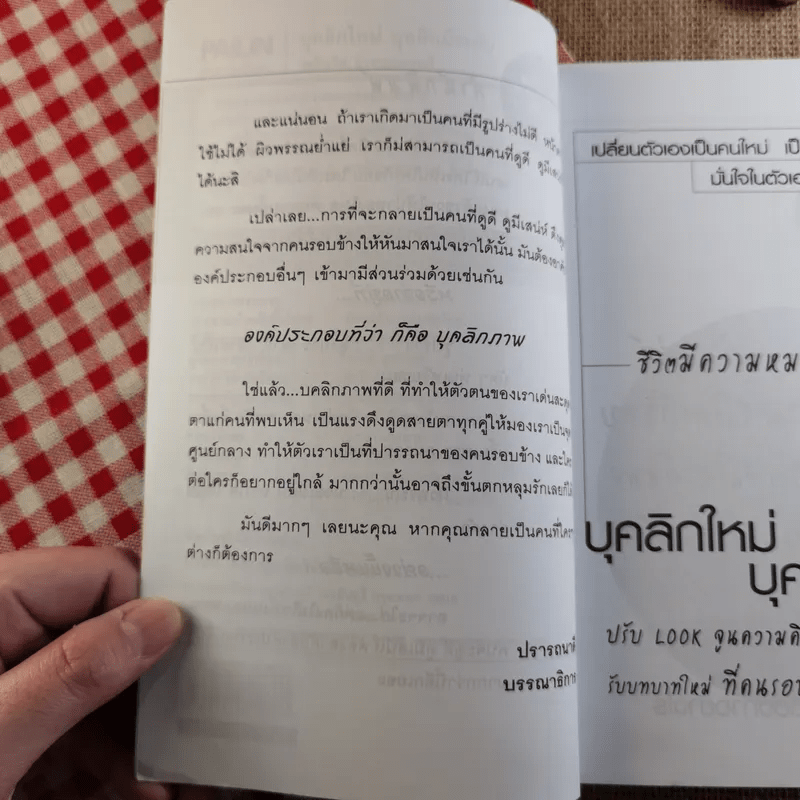 และแน่นอน ถ้าเราเกิดมาเป็นคนที่มีรูปร่างไม่ดี
ใช้ไม่ได้ ผิวพรรณย่ำแย่ เราก็ม่สามารถเป็นคนที่ดูดี
ได้นะสิ
เปล่าเลย...การที่จะกลายเป็นคนที่ดูดี ดูมีเสน่ห์
ความสนใจจากคนรอบข้างให้หันมาสนใจเราได้นั้น มันต้อง
องค์ประกอบอื่นๆ เข้ามามีส่วนร่วมด้วยเช่นกัน
องค์ประกอบที่ว่า ก็คือ บุคลิกภาพ
ใช่แล้ว...บคลิกภาพที่ดี ที่ทำให้ตัวตนของเราเด่น
ตาแก่คนที่พบเห็น เป็นแรงดึงดูดสายตาทุกคู่ให้มองเราเป็น
ศูนย์กลาง ทำให้ตัวเราเป็นที่ปารรถนาของคนรอบข้าง และ
ต่อใครก็อยากอยู่ใกล้ มากกว่านั้นอาจถึงขั้นตกหลุมรักเลย
มันดีมากๆ เลยนะคุณ หากคุณกลายเป็นคนที่
ต่างก็ต้องการ
ปรารถนา
บรรณาธิการ
เปลี่ยนตัวเองเป็นคนใหม่
มั่นใจในตัว
ชีวิตมีความ
บุคลิกใหม่
ปรับ LOOK จูนความ
รับบทบาทใหม่ ที่คนรอบ